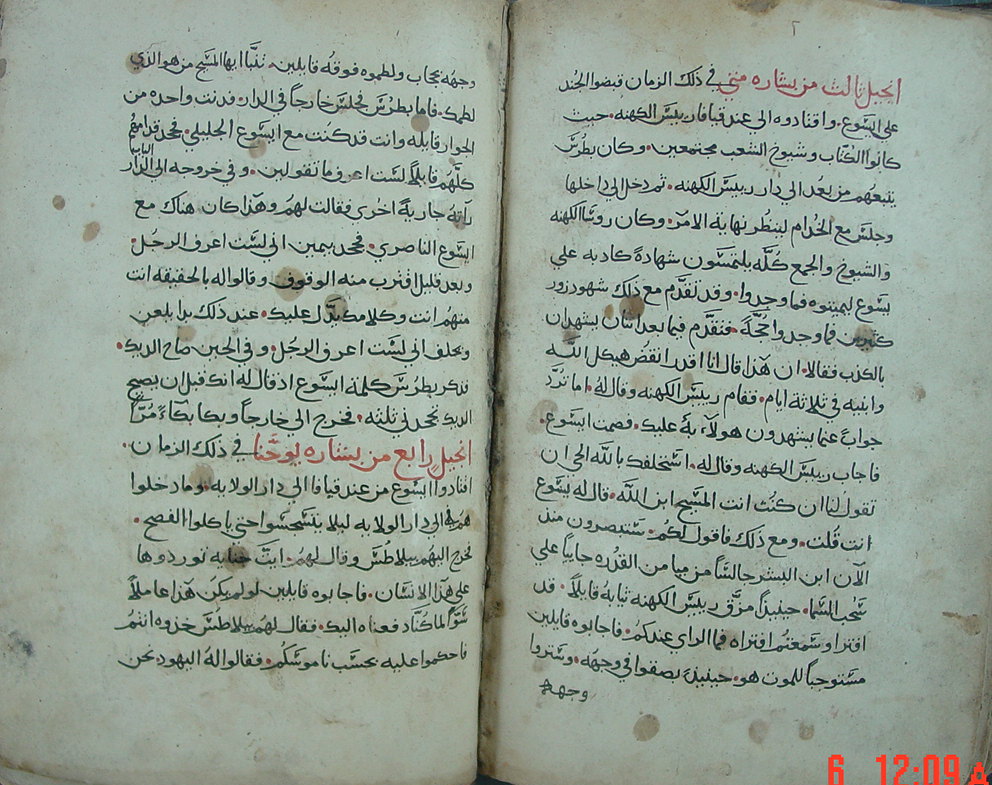 ٢
انجيل ثالث من بشاره متي في ذلك الزمان قبضوا الجند
علي ايسوع. واقتادوه الي عند قيافا ريس الكهنه. حيث
كانوا الكتاب وشيوخ الشعب مجتمعين. وكان بطرس
يتبعهم من بعد الي دار رييس الكهنه. ثم دخل الي داخلها
وجلس مع الخدام لينظر نهاية الامر. وكان روسا الكهنه
والشيوخ والجمع كله يلتمسون شهادة كادبه علي
يسوع ليميتوه فما وجدوا. وقد تقدم مع ذلك شهود زور
كثيرين فما وجدوا حجة. فتقدم فيما بعد اثنان يشهدان
بالكدب فقالا. ان هذا قال انا اقدر انقض هيكل الله
وابنيه في تلاتة ايام. فقام رييس الكهنه وقال له. اما ترد
جواباً عما يشهدون هولاء به عليك. فصمت ايسوع.
فاجاب رييس الكهنه وقال له. استحلفك بالله الحي ان
تقول لنا ان كنت انت المسيح ابن الله. قال له يسوع
انت قلت. ومع ذلك فاقول لكم. ستبصرون منذ
الآن ابن البشر جالساً من ميامن القدره جايياً علي
سحب السما. حينيذ مزق رييس الكهنه ثيابه قايلاً. قد
افترا وسمعتم افتراه فما الراي عندكم. فاجابوه قايلين
مستوجباً للموت هو. حينيذ بصقوا في وجهه. وستروا
وجهه
وجهه بحجاب ولطموه فوقه قايلين. تنبا ايها المسيح من هو الذي
لطمك. فاما بطرس فجلس خارجاً في الدار. فدنت واحده من
الجوار قايله وانت قد كنت مع ايسوع الجليلي. فجحد قدامهم
كلهم قايلاً لست اعرف ما تقولين. وفي خروجه الي الدار
راته جارية اخري فقالت لهم وهذا كان هناك مع
ايسوع الناصري. فجحد بيمين اني لست اعرف الرجل.
وبعد قليل اقترب منه الوقوف وقالوا له بالحقيقه انت
منهم انت وكلامك يدل عليك. عند ذلك بدا يلعن
ويحلف اني لست اعرف الرجل. وفي الحين صاح الديك.
فدكر بطرس كلمة ايسوع اد قال له انك قبل ان يصيح
الديك تجحدني تلته. فخرج الي خارجاً وبكا بكاءً مراً
انجيل رابع من بشاره يوحنا في ذلك الزمان.
اقتادوا ايسوع من عند قيافا الي دار الولايه. وما دخلوا
هم الي دار الولايه ليلا يتنجسوا حتي ياكلوا الفصح.
فخرج اليهم بيلاطس وقال لهم. ايت جنايه توردوها
علي هذا الانسان. فاجابوه قايلين لو لم يكن هذا عاملاً
سوًّا لما كنا دفعناه اليك. فقال لهم بيلاطس خدوه انتم
فاحكموا عليه بحسب ناموسكم. فقالوا له اليهود نحن